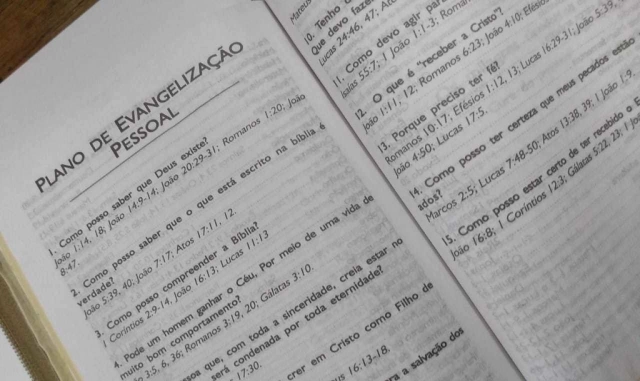 PLANO DE EVANGELIZAÇÃO
PESSOAL
1. Como posso saber que Deus existe?
João 1:14, 18; João 14:9-14; João 20:29-31; Romanos 1:20; João
8:47.
2. Como posso saber que o que está escrito na bíblia é
verdade?
João 5:39, 40; João 7:17; Atos 17:11, 12.
3. Como posso compreender a Bíblia?
1 Coríntios 2:9-14, João 16:13; Lucas 11:13
4. Pode um homem ganhar o Céu, Por meio de uma vida de
muito bom comportamento?
3:5, 6, 36; Romanos 3:19, 20; Gálatas 3:10.
que, com toda a sinceridade, creia estar no
será condenada por toda eternidade?
17:30.
crer em Cristo como Filho de
16:13-18.
a salvação dos
Mateus
10. Tenho
Que devo fazer
Lucas 24:46, 47;
11. Como devo agir para
Isaías 55:7; 1 João 1:1-3; Romanos
12. O que é "receber a Cristo"?
João 1:11, 12; Romanos 6:23; João 4:10; Efésios
13. Porque preciso ter fé?
Romanos 10:17; Efésios 1:12, 13; Lucas 16:29-31; João 5:39,
João 4:50; Lucas 17:5.
14. Como posso ter certeza que meus pecados estão
ados?
Marcos 2:5; Lucas 7:48-50; Atos 13:38, 39; 1 João 1:9
15. Como posso estar certo de ter recebido o
João 16:8; 1 Coríntios 12:3; Gálatas 5:22, 23; 1